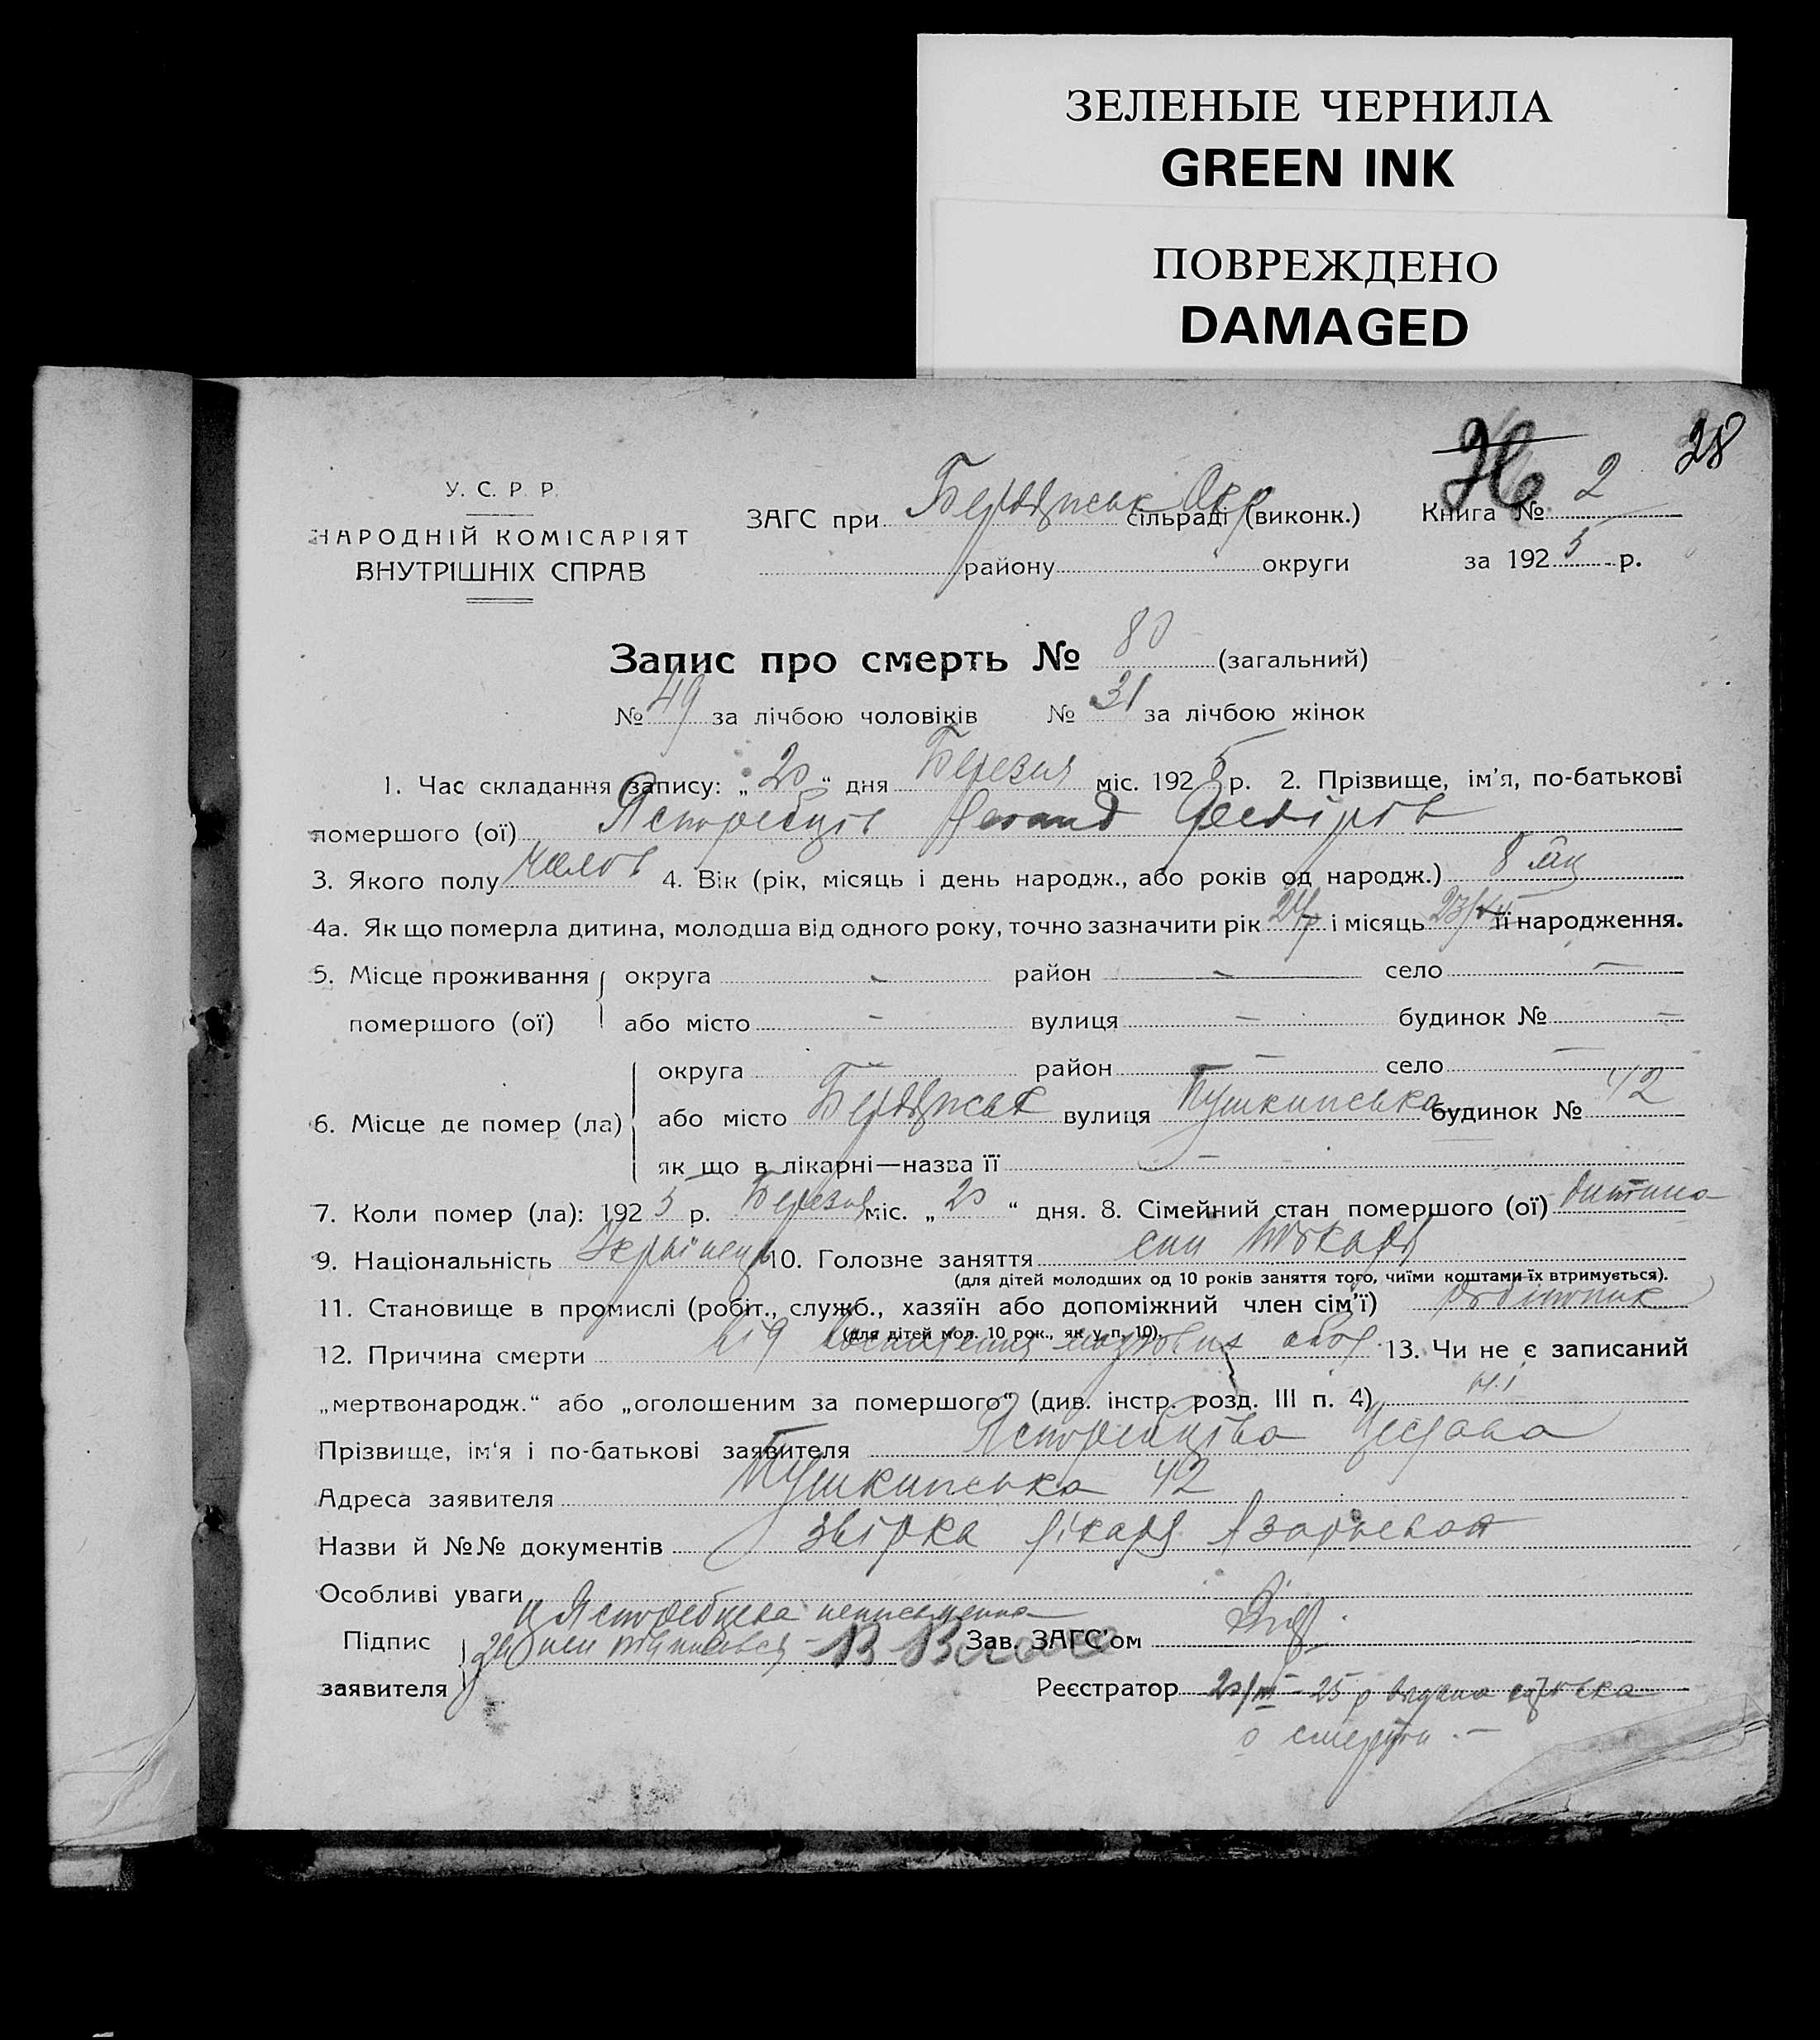 ЗЕЛЕНЫЕ ЧЕРНИЛА
GREEN INK
ПОВРЕЖДЕНО
DAMAGED
28
У. С. Р. Р.
НАРОДНІЙ КОМІСАРІЯТ
ВНУТРІШНІХ СПРАВ
ЗАГС при Бердянськ Окр сільраді (виконк.) Книга № 2
району округи за 1925 р.
Запис про смерть № 80 (загальний)
№ 49 за лічбою чоловіків № 31 за лічбою жінок
1. Час складання запису: „20“ дня Березня міс. 1925 р. 2. Прізвище, ім’я, по-батькові
помершого (ої) Ясторебців
3. Якого полу чолов 4. Вік (рік, місяць і день народж., або років од народж.) 8 міс
4а. Як що померла дитина, молодша від одного року, точно зазначити рік 24р і місяць її народження.
5. Місце проживання округа - район - село -
помершого (ої) або місто - вулиця - будинок № -
округа район - село -
6. Місце де помер (ла) або місто Бердянськ вулиця Пушкинська будинок № 42
як що в лікарні—назва її -
7. Коли помер (ла): 1925 р. Березня міс. „20“ дня. 8. Сімейний стан помершого (ої) дитина
9. Національність Українець 10. Головне заняття син токаря
(для дітей молодших од 10 років заняття того, чиїми коштами їх втримується).
11. Становище в промислі (робіт., служб., хазяїн або допоміжний член сім’ї) робітник
(для дітей мол. 10 рок., як у п. 10).
12. Причина смерти від мозгових обол 13. Чи не є записаний
„мертвонародж.“ або „оголошеним за помершого“ (див. інстр. розд. III п. 4) ні
Прізвище, ім‘я і по-батькові заявителя Ясторебцева
Адреса заявителя Пушкинська 42
Назви й №№ документів звірка лікаря
Особливі уваги
Ясторебцева неписьменна
Підпис за неи Зав. ЗАГС’ом
заявителя Реєстратор 20/III - 25 р видана
о смерти -